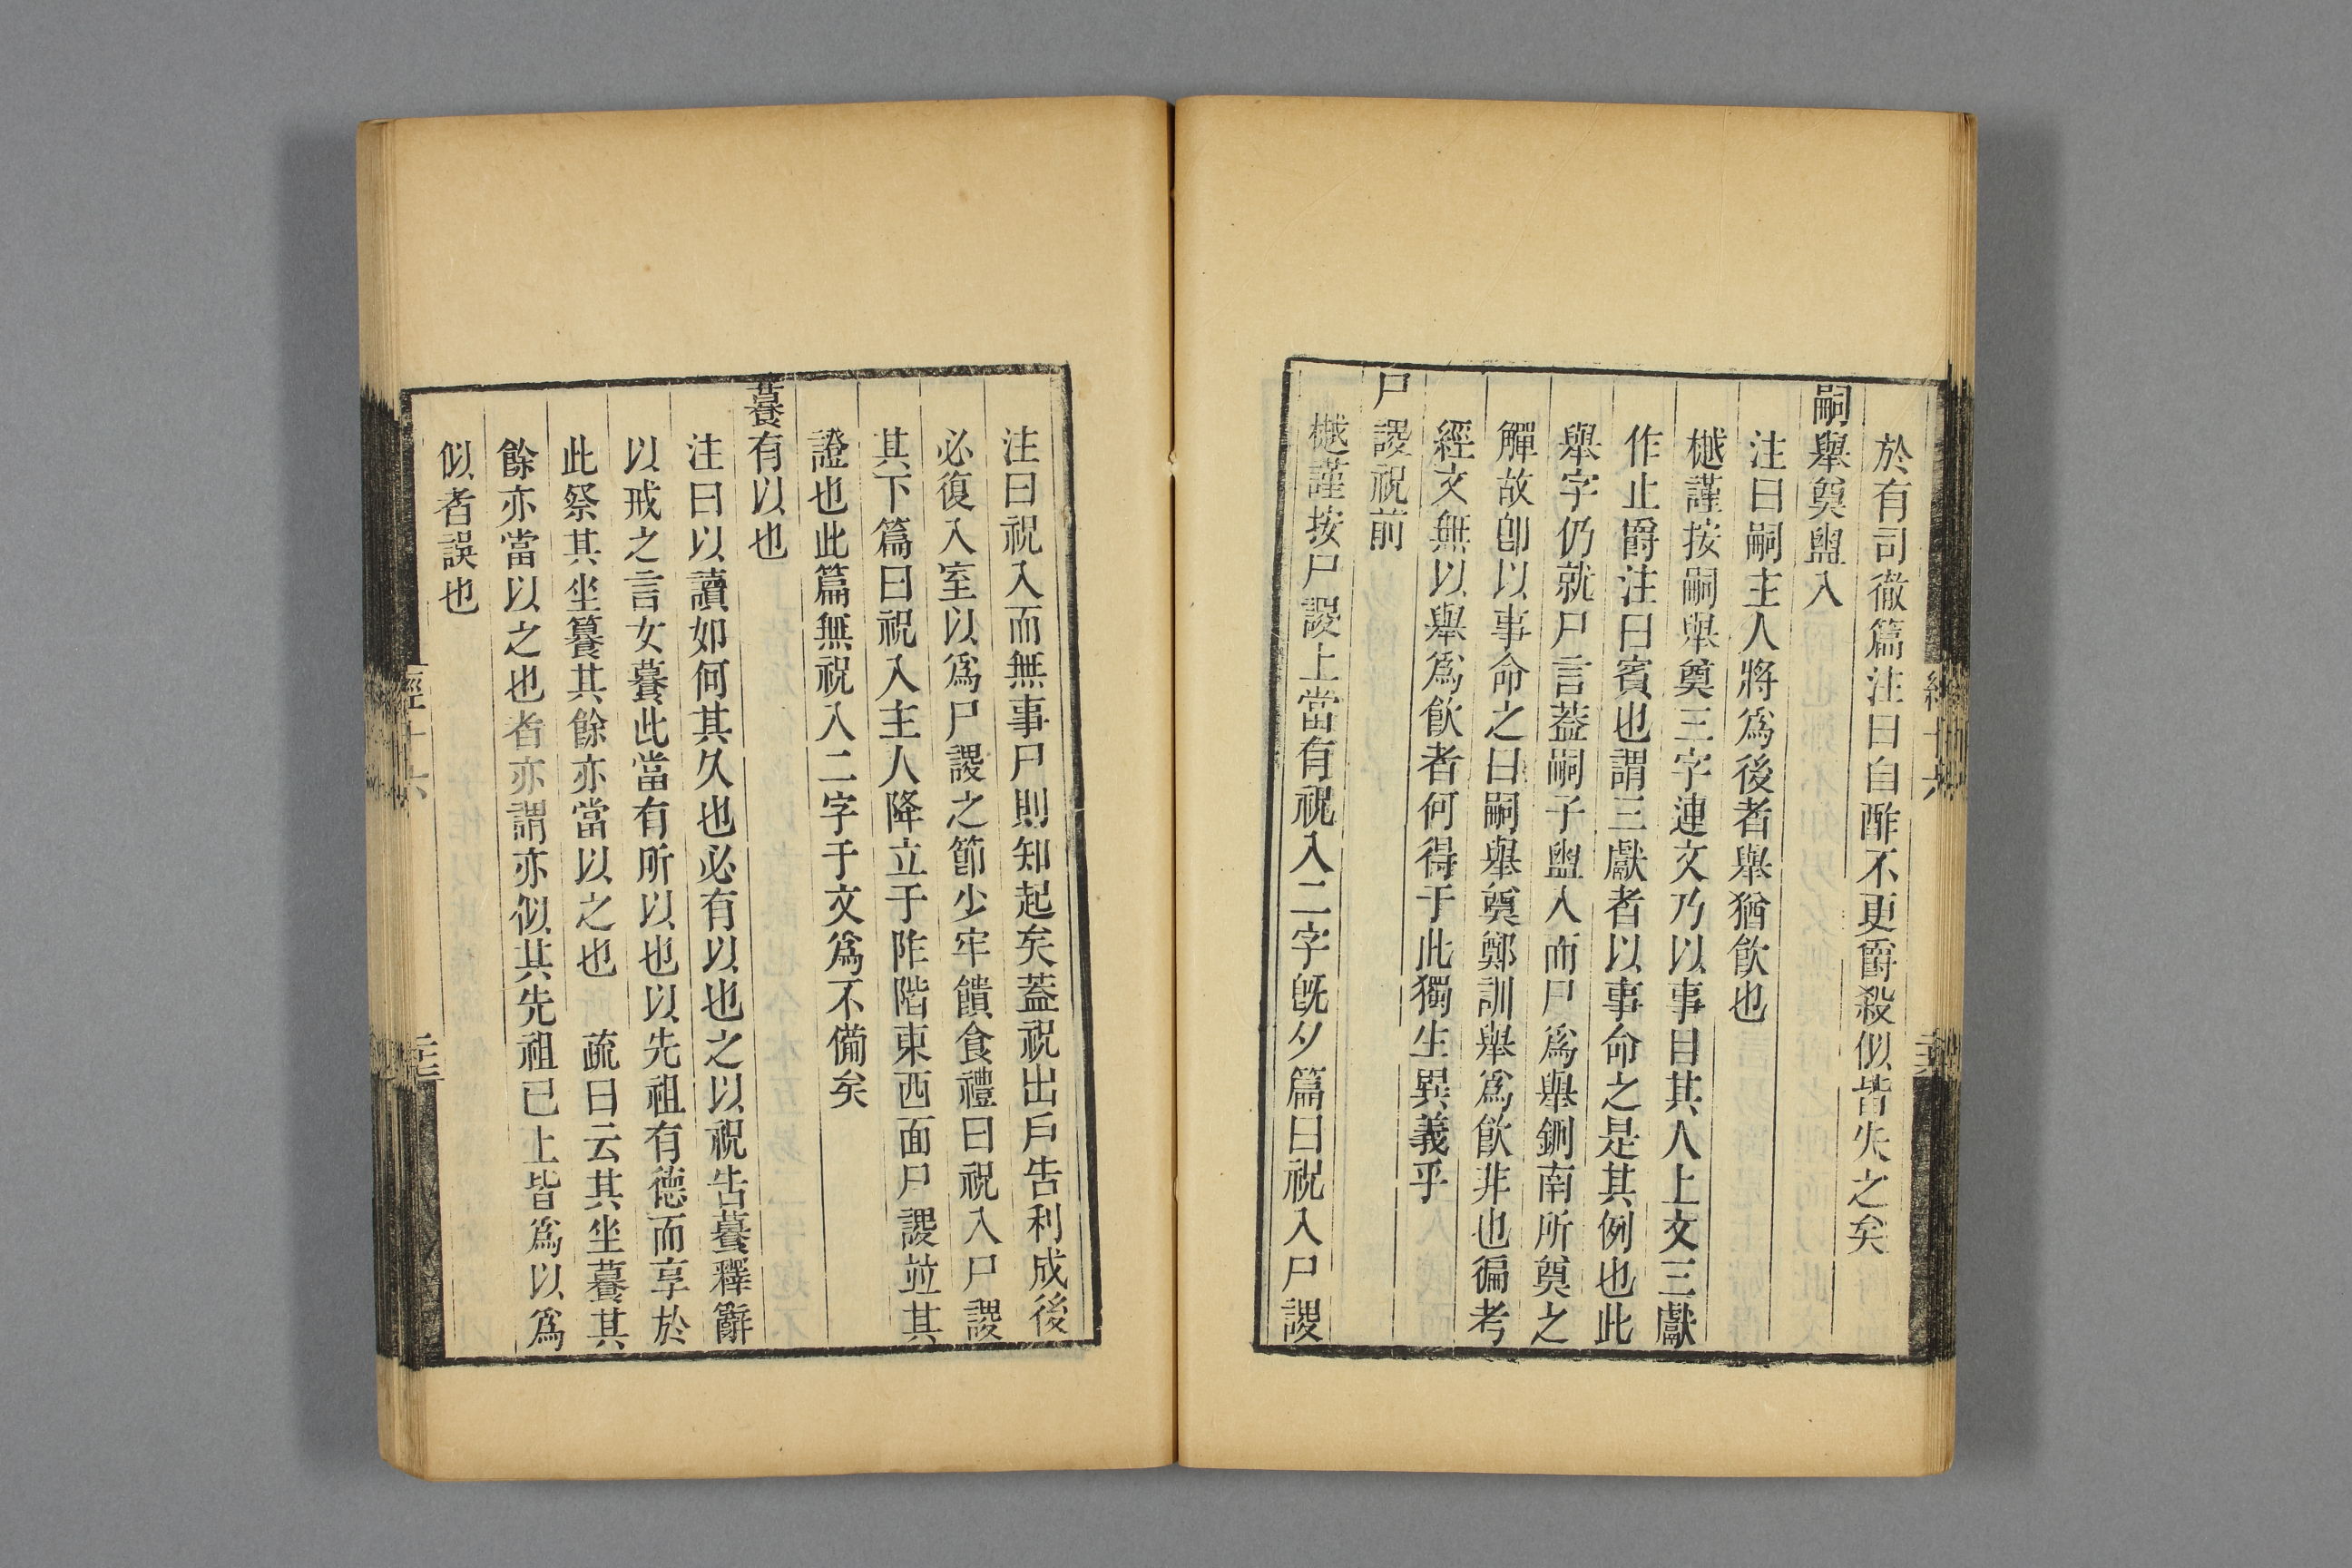 於有司徹篇注曰自酢不更爵殺似皆失之矣
嗣舉奠盥入
注曰嗣主人將爲後者舉猶飮也
樾謹按嗣舉奠三字連文乃以事目其人上文三獻
作止爵注曰賓也謂三獻者以事命之是其例也此
舉字仍就尸言葢嗣子盥入而尸爲舉鉶南所奠之
觶故卽以事命之曰嗣舉奠鄭訓舉爲飮非也徧考
經文無以舉爲飮者何得于此獨生異義乎
尸謖祝前
樾謹按尸謖上當有祝入二字旣夕篇曰祝入尸謖
注曰祝入而無事尸則知起矣葢祝出戶告利成後
必復入室以爲尸謖之節少牢饋食禮曰祝入尸謖
其下篇曰祝入主人降立于阼階東西面尸謖竝其
證也此篇無祝入二字于文爲不備矣
䕬有以也
注曰以讀如何其久也必有以也之以祝告䕬釋辭
以戒之言女䕬此當有所以也以先祖有德而享於
此祭其坐䉵其餘亦當以之也　疏曰云其坐䕬其
餘亦當以之也者亦謂亦似其先祖已上皆爲以爲
似者誤也